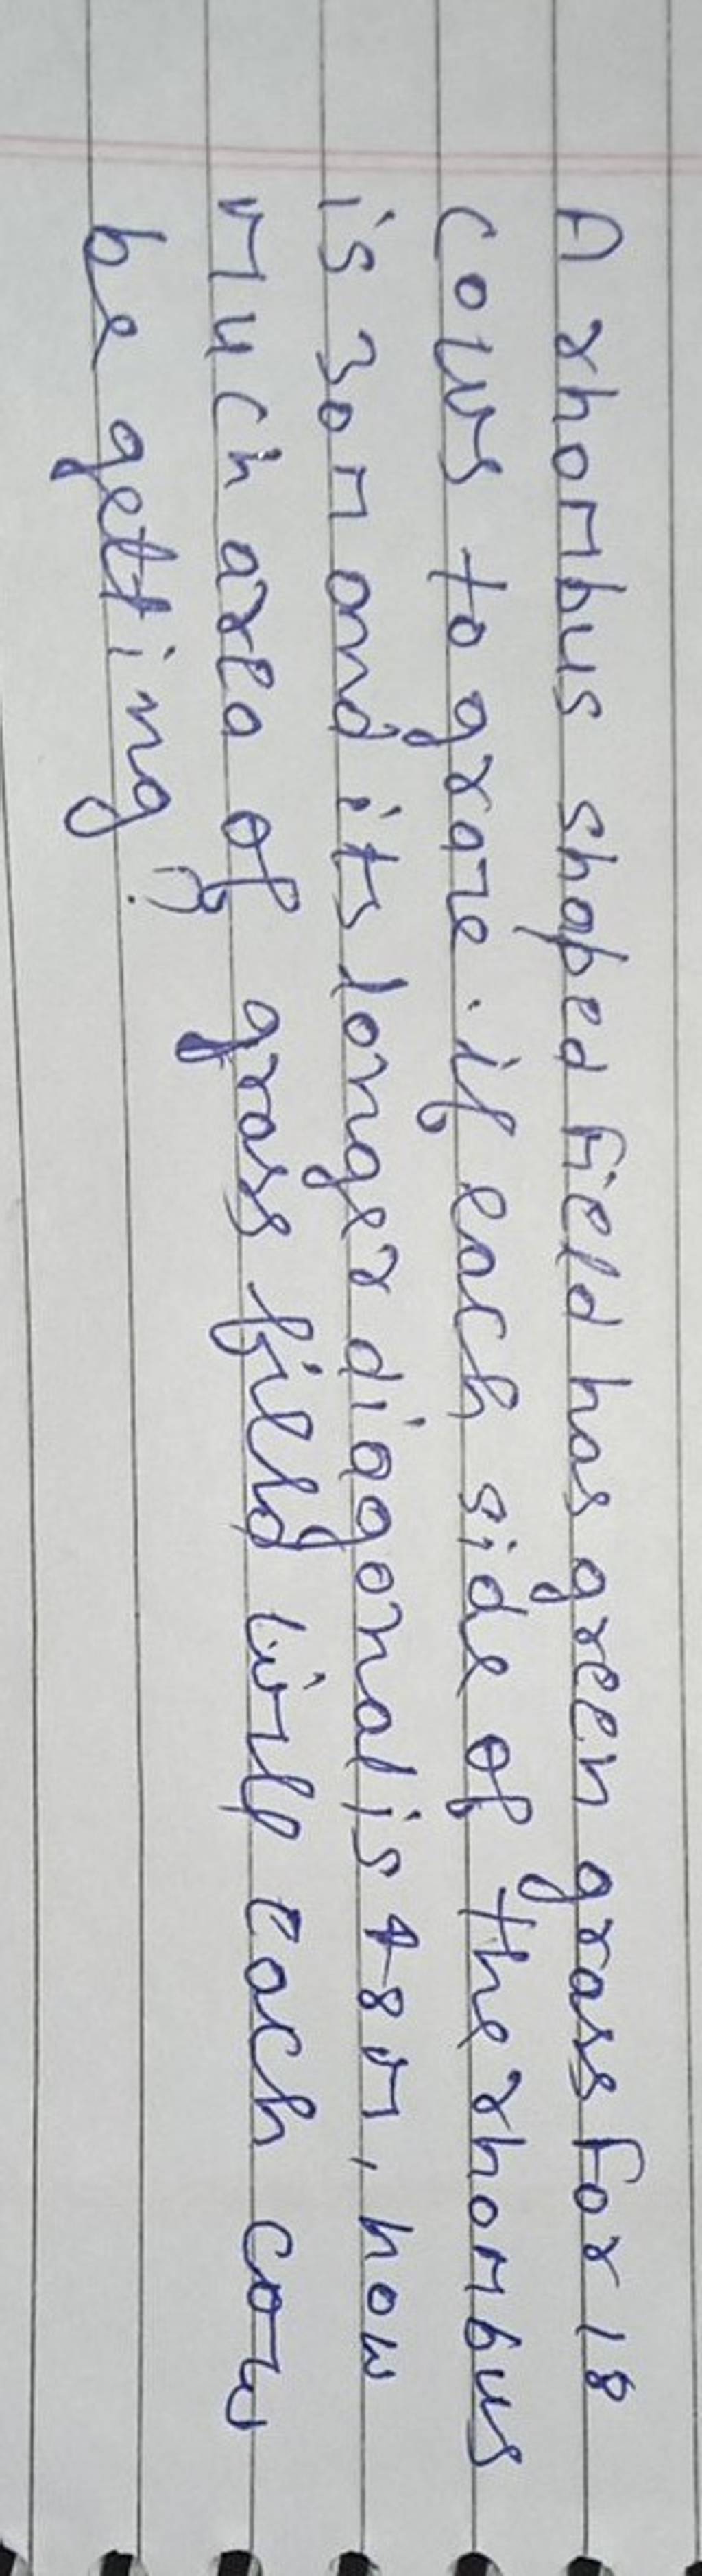 A rhombus shaped field has green grass for 18
cows to graze. if each side of the rhombus
is 30m and its longer diagonal is 48m, how
much area of grass field will each cow
be getting?